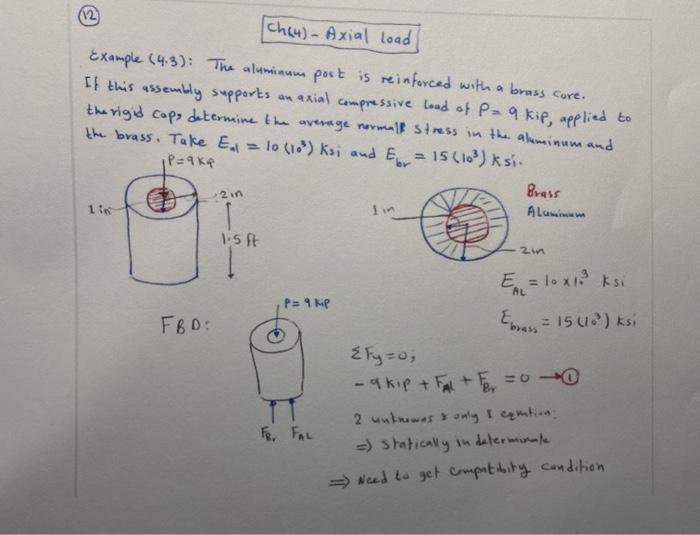 12
Ch(4) - Axial Load
Example (4.3): The aluminum post is reinforced with a brass core.
If this assembly supports an axial compressive load of P = 9 kip, applied to
the rigid cap, determine the average normal stress in the aluminum and
the brass. Take Eal = 10 (10³) Ksi and Ebr = 15 (10³) Ksi.
P=9kip
1 in
2in
1.5 ft
1 in
2in
Brass
Aluminum
EAL = 10 x 10³ Ksi
Ebrass = 15 (10³) Ksi
FBD:
P= 9 kip
FBr FAL
ΣFy=0;
-9 kip + FAl + FBr = 0 → 1
2 unknowns & only 1 equation:
=> Statically indeterminate
=> Need to get compatibility condition